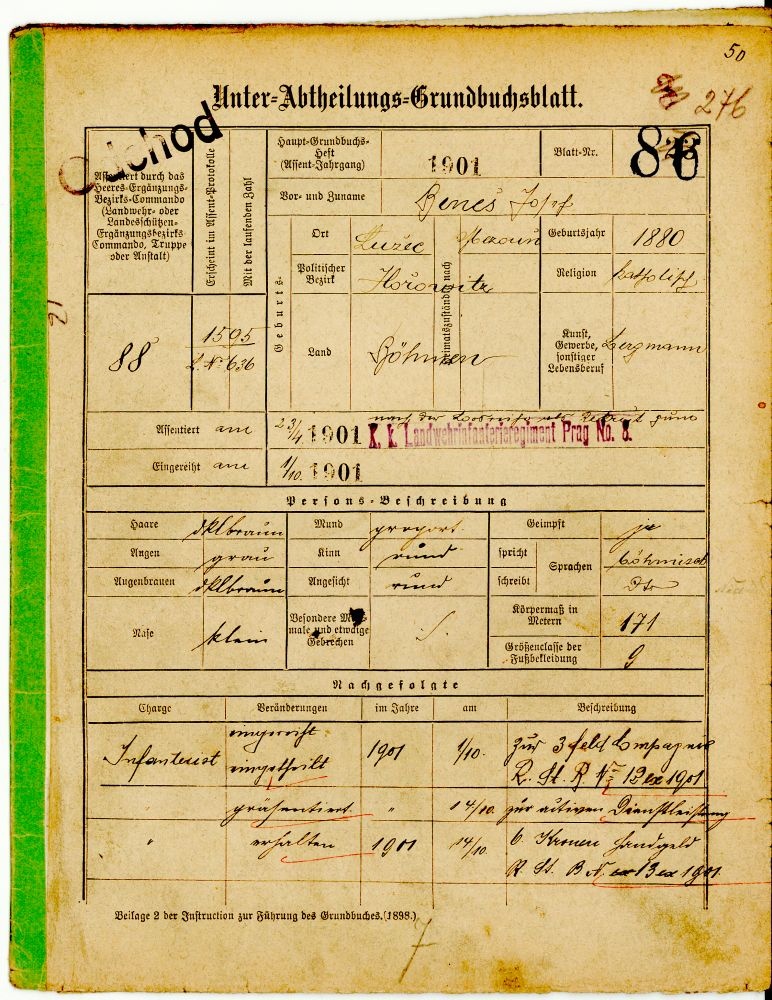 50
Unter-Abtheilungs-Grundbuchsblatt.
276
Odchod
Assentiert durch das
Heeres-Ergänzungs-
Bezirks-Commando
(Landwehr- oder
Landesschützen-
Ergänzungsbezirks-
Commando, Truppe
oder Anstalt)
Erscheint im Assent-Protokolle
Mit der laufenden Zahl
Haupt-Grundbuchs-
Heft
(Assent-Jahrgang)
1901
Blatt-Nr.
86
Vor- und Zuname
Beneš Josef
Geburts-
Ort
Lužec
Heimatszuständig nach
Geburtsjahr
1880
Politischer
Bezirk
Hořowitz
Religion
katholisch
21
88
1595
L. No 636
Land
Böhmen
Kunst,
Gewerbe,
sonstiger
Lebensberuf
Bergmann
Assentiert am
23/4 1901
nach der Losreihe als Rekrut zum
K. k. Landwehrinfanterieregiment Prag No. 8.
Eingereiht am
1/10. 1901
Persons-Beschreibung
Haare dklbraun
Mund proport.
Geimpft ja
Augen grau
Kinn rund
spricht
Sprachen
böhmisch
Augenbrauen dklbraun
Angesicht rund
schreibt
Dto
Nase klein
Besondere Merk-
male und etwaige
Gebrechen
Körpermaß in
Metern
171
Größenclasse der
Fußbekleidung
9
Nachgefolgte
Charge Veränderungen im Jahre am Beschreibung
Infanterist
eingereiht
eingetheilt
1901 1/10. zur 3 feld Compagnie
12 ex 1901
präsentiert " 14/10. zur activen Dienstleistung
" erhalten 1901 14/10. 6 Kronen Handgeld
13 ex 1901
Beilage 2 der Instruction zur Führung des Grundbuches. (1898.)
7